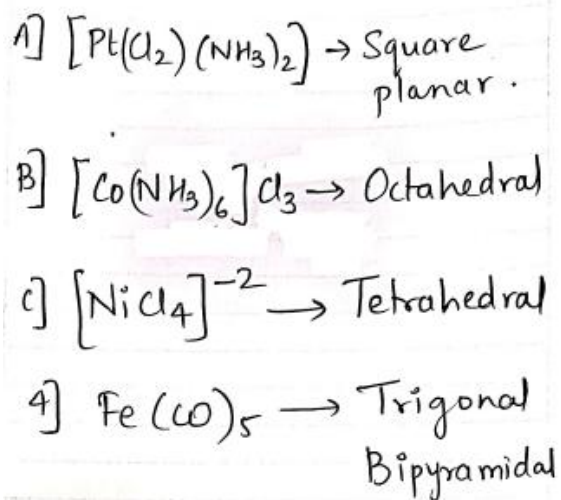 A] [Pt(Cl₂)(NH₃)₂] → Square
planar.
B] [Co(NH₃)₆]Cl₃ → Octahedral
C] [NiCl₄]⁻² → Tetrahedral
4] Fe(CO)₅ → Trigonal
Bipyramidal